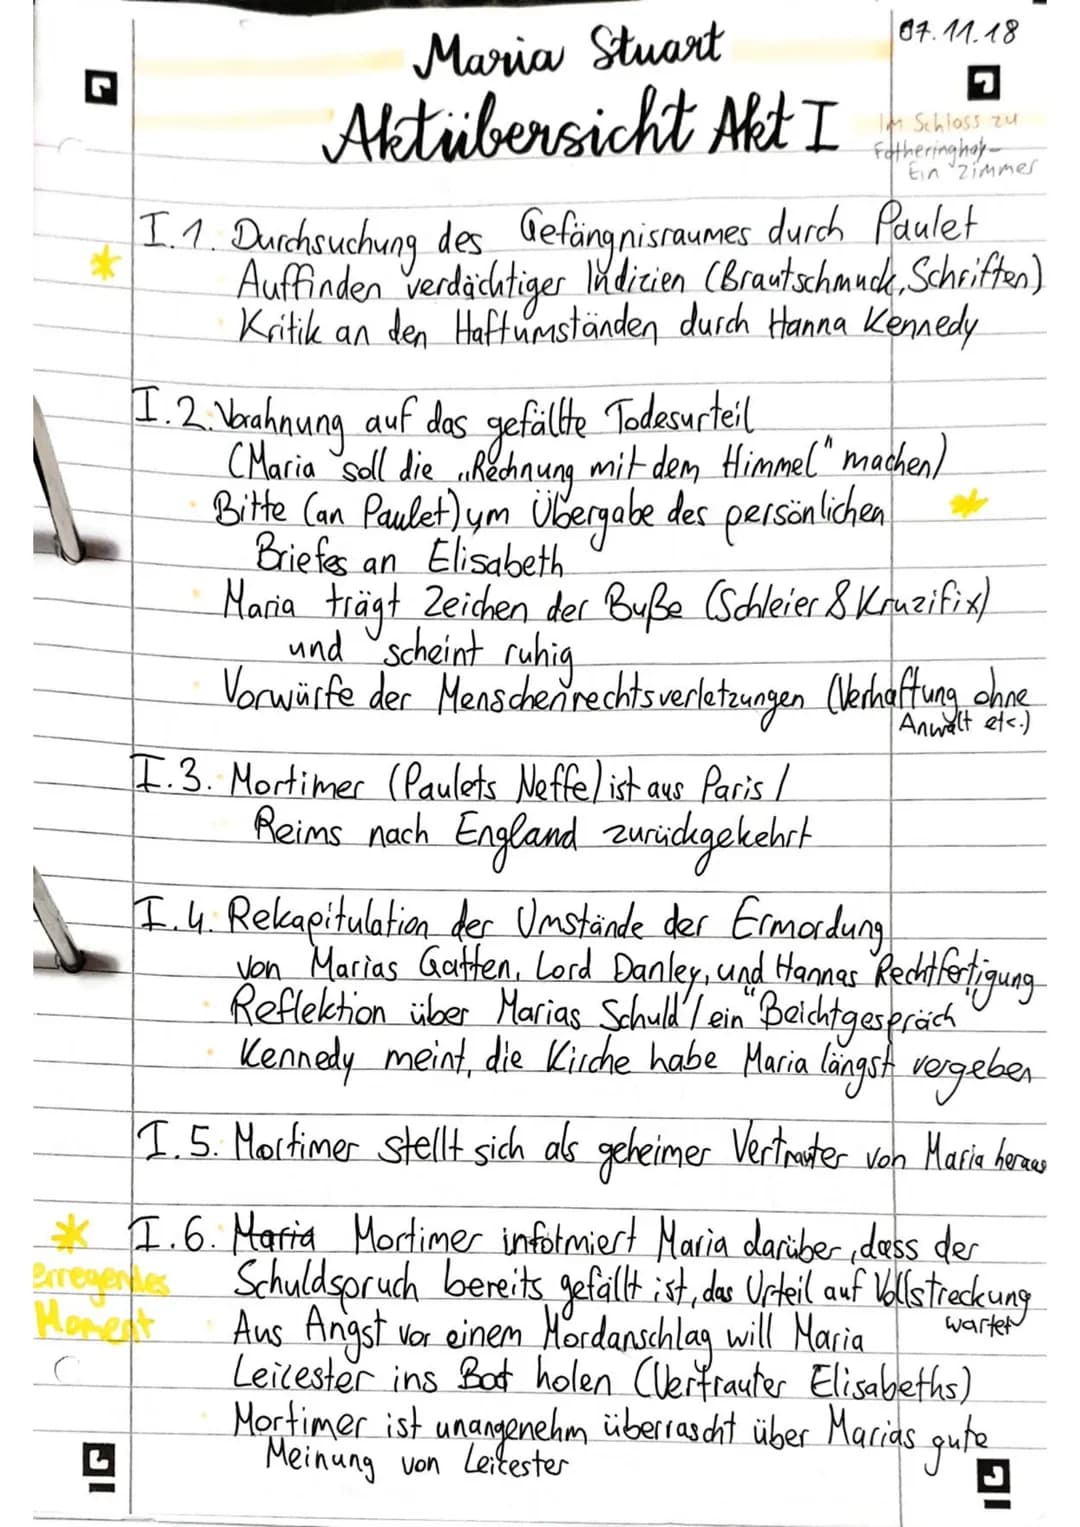 07.11.18
Maria Stuart
Aktübersicht Akt I
Im Schloss zu
Fotheringhay-
Ein Zimmer
I.1. Durchsuchung des Gefängnisraumes durch Paulet
Auffinden verdächtiger Indizien (Brautschmuck, Schriften)
Kritik an den Haftumständen durch Hanna Kennedy
I.2. Vorahnung auf das gefällte Todesurteil
(Maria soll die „Rechnung mit dem Himmel" machen)
Bitte (an Paulet) um Übergabe des persönlichen
Briefes an Elisabeth
Maria trägt Zeichen der Buße (Schleier & Kruzifix)
und scheint ruhig
Vorwürfe der Menschenrechtsverletzungen (Verhaftung ohne
Anwalt etc.)
I.3. Mortimer (Paulets Neffe) ist aus Paris /
Reims nach England zurückgekehrt
I.4. Rekapitulation der Umstände der Ermordung
von Marias Gatten, Lord Danley, und Hannas Rechtfertigung
Reflektion über Marias Schuld / ein "Beichtgespräch"
Kennedy meint, die Kirche habe Maria längst vergeben
I.5. Mortimer stellt sich als geheimer Vertrauter von Maria heraus
I.6. Maria Mortimer informiert Maria darüber, dass der
Schuldspruch bereits gefällt ist, das Urteil auf Vollstreckung
wartet
erregendes
Moment
Aus Angst vor einem Mordanschlag will Maria
Leicester ins Boot holen (Vertrauter Elisabeths)
Mortimer ist unangenehm überrascht über Marias gute
Meinung von Leicester